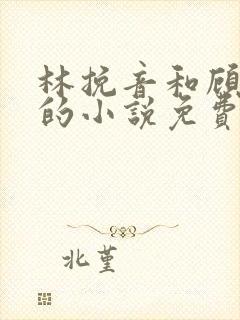 林挽音和顾
的小說免費
北堇